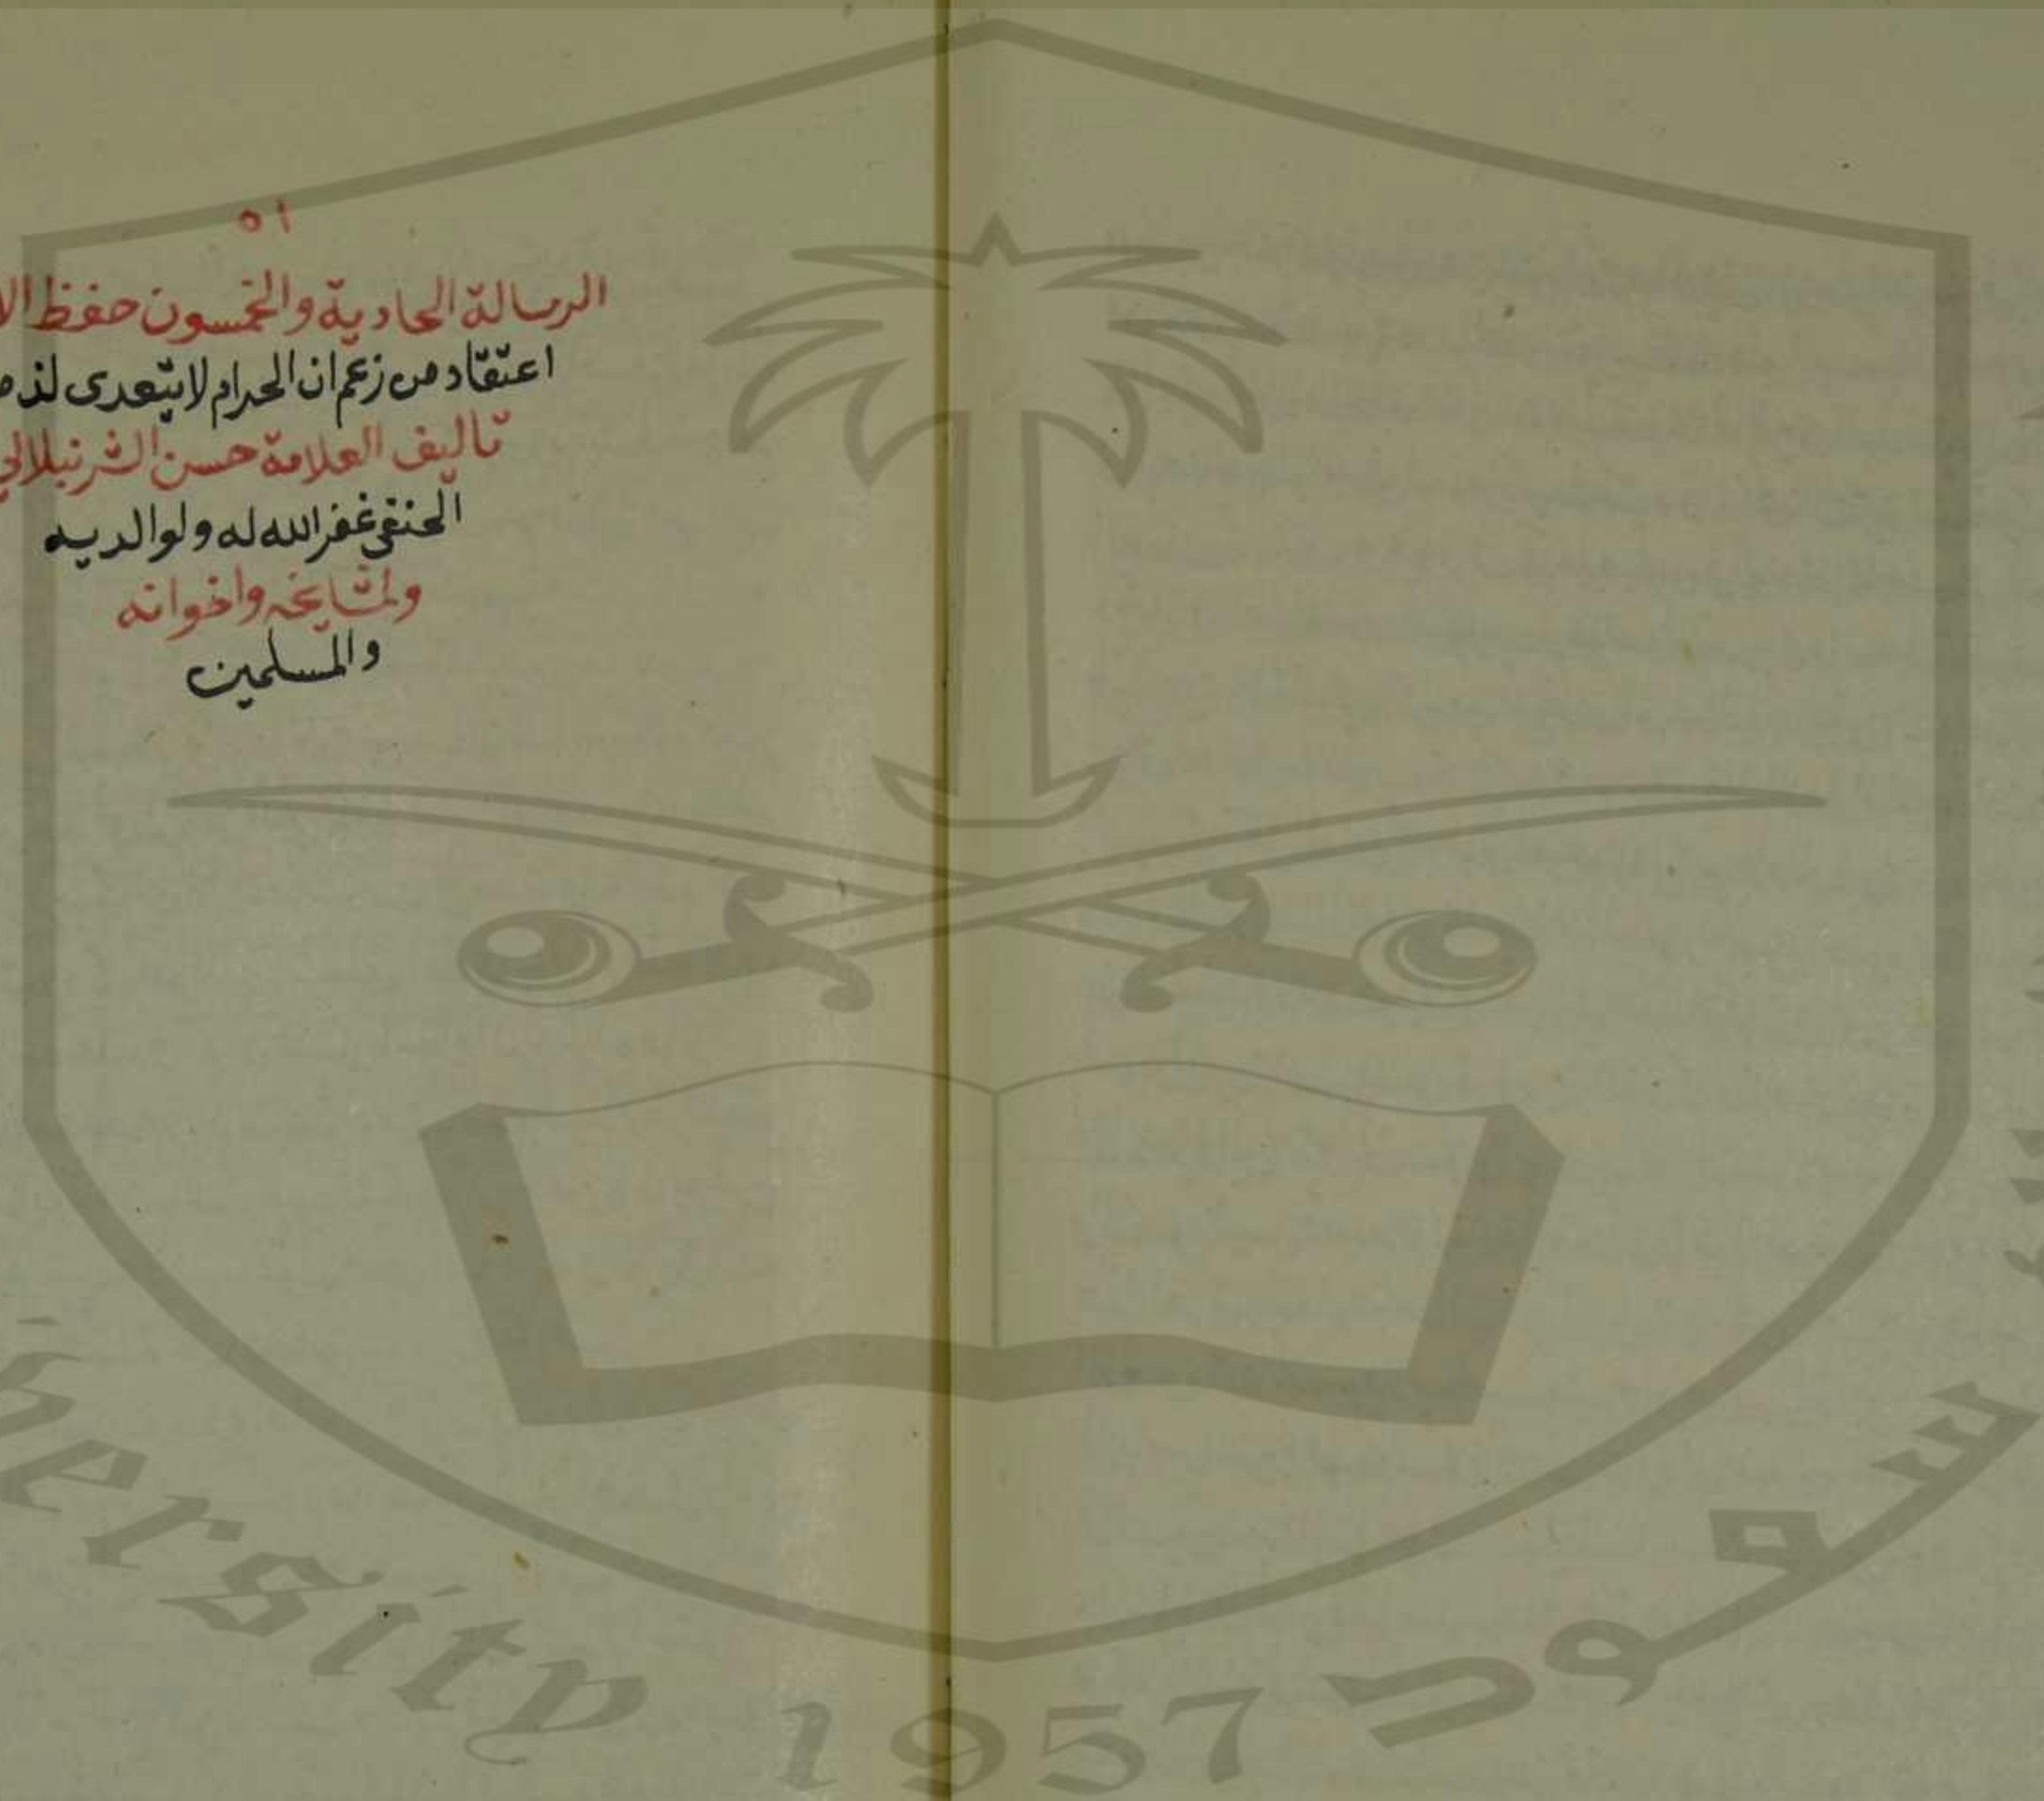 ٥١
الرسالة الحادية والخمسون حفظ
اعتقاد من زعم ان الحرام لا يتعدى
تاليف العلامة حسن الشرنبلالي
الحنفي غفر الله له ولوالديه
ولمشايخه واخوانه
والمسلمين
سعود
ersity 1957